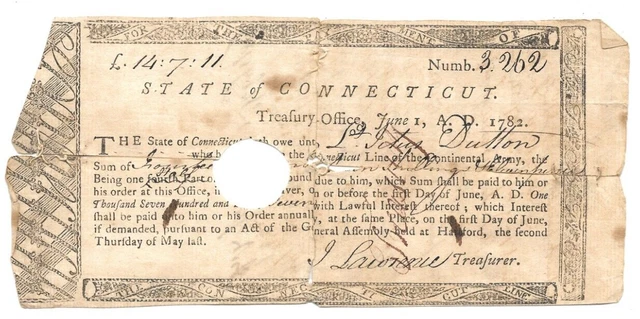 FOR THE PAYMENT OF
£. 14:7:11. Numb. 3262
STATE of CONNECTICUT.
Treasury Office, June 1, A. D. 1782.
THE State of Connecticut doth owe unto Dutton
who the Connecticut Line of the Continental Army, the
Sum of Shillings
Being one Part due to him, which Sum shall be paid to him or
his order at this Office, in or before the first Day of June, A. D. One
Thousand Seven Hundred and with Lawful Interest thereof; which Interest
shall be paid to him or his Order annually, at the same Place, on the first Day of June,
if demanded, pursuant to an Act of the General Assembly held at Hartford, the second
Thursday of May last.
J Lawrence Treasurer.
THE CONNECTICUT LINE